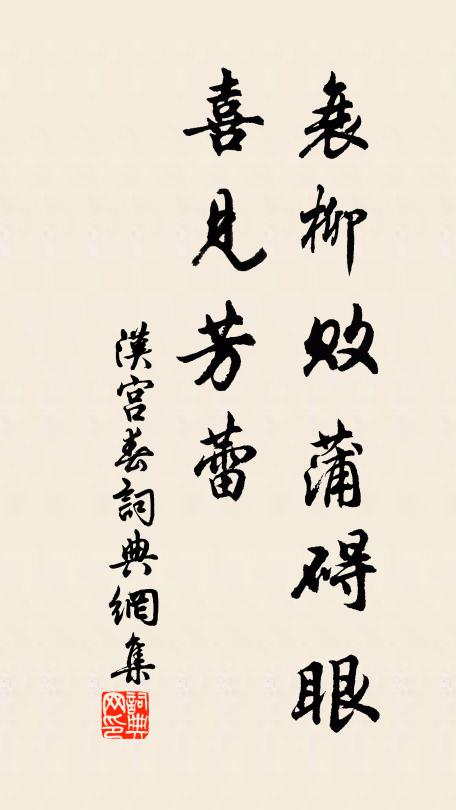 衰柳败蒲碍眼
喜見芳蕾
漢宮春詞典網集
詞典网印